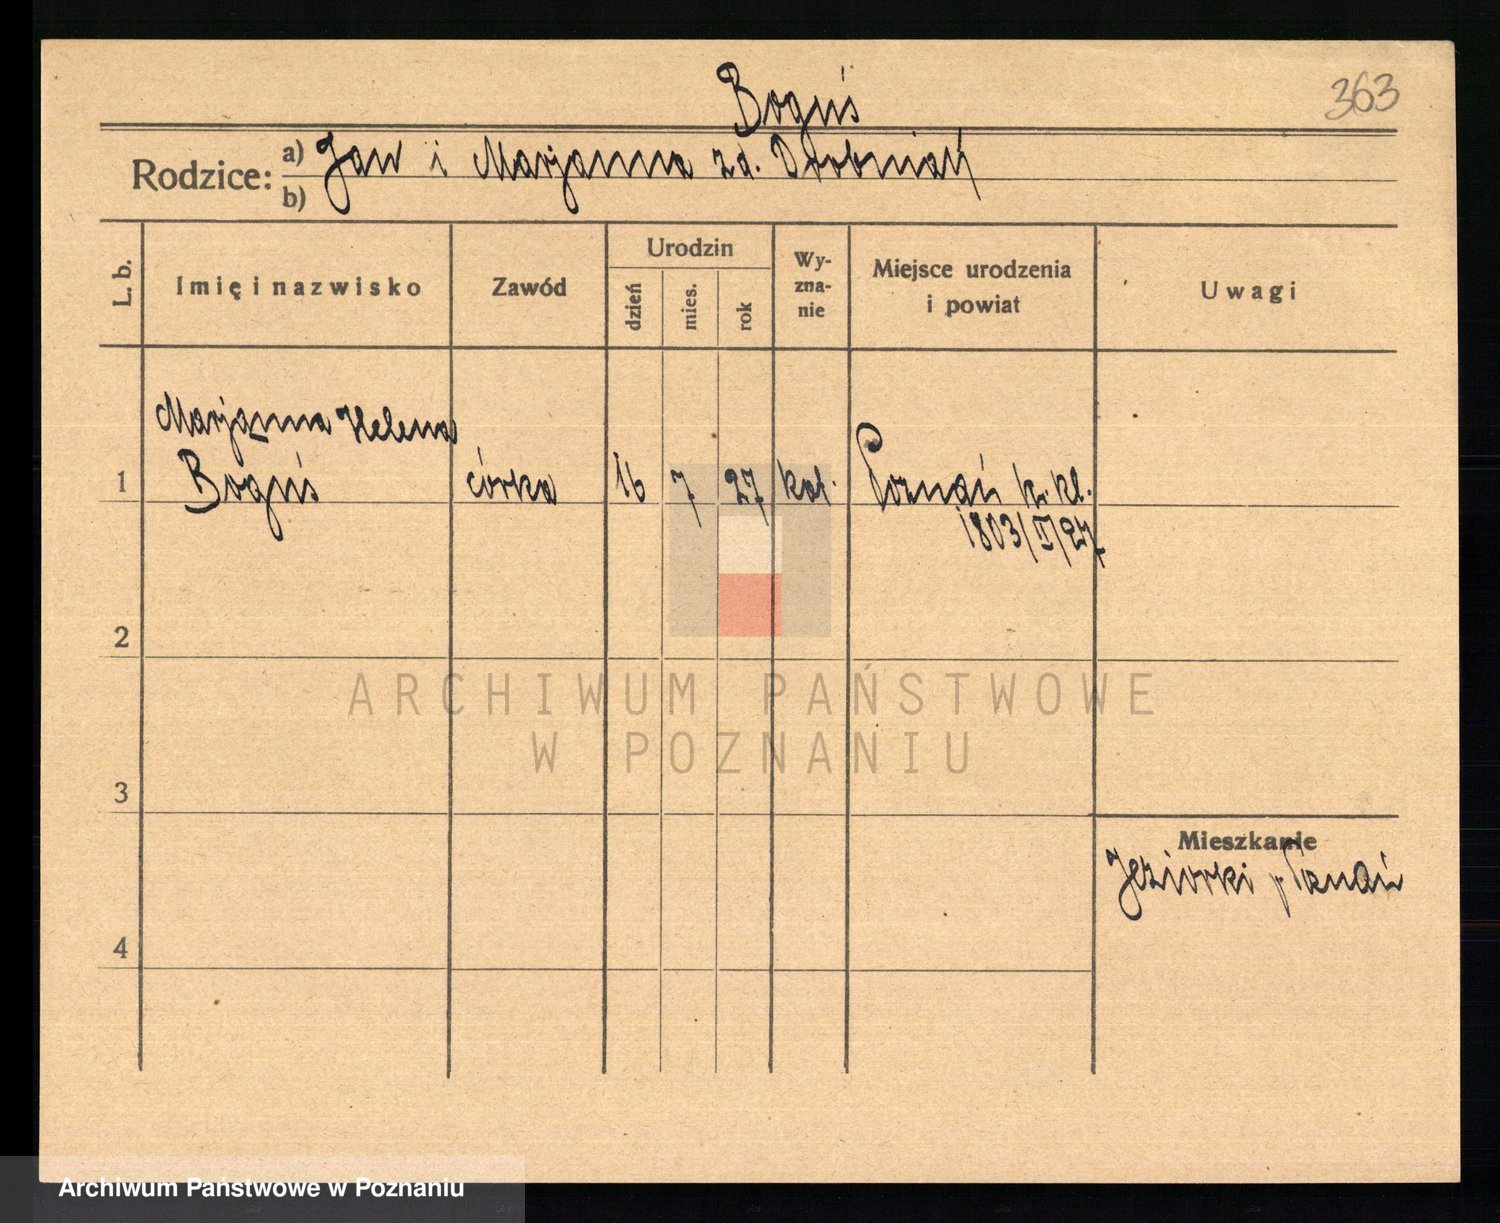 Boguś
363
Rodzice: a) Jan i Marjanna zd. Drobniań
b)
L. b.
Imię i nazwisko
Zawód
Urodzin
dzień
mies.
rok
Wy-
zna-
nie
Miejsce urodzenia
i powiat
Uwagi
Marjanna Helena
1 Boguś córka 16 7 27 kat. Poznań kr. kl.
1803/II/27
2
3
4
Mieszkanie
Jeziorki p. Poznań
ARCHIWUM PAŃSTWOWE
W POZNANIU
Archiwum Państwowe w Poznaniu